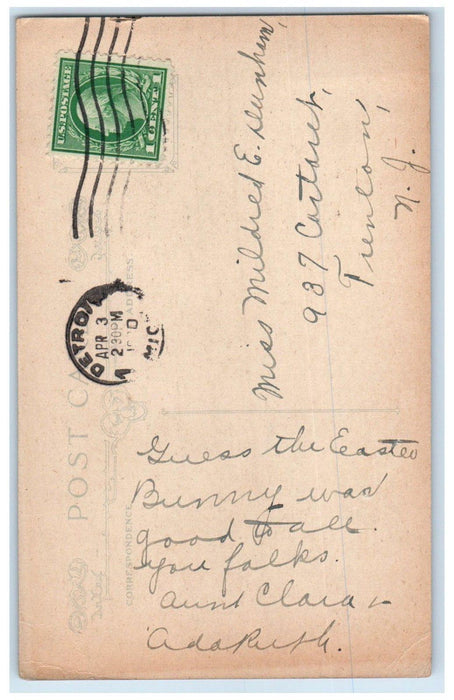 U.S. POSTAGE
1 CENT 1
DETROIT
APR 3
2:30PM
MICH
POST CARD
CORRESPONDENCE
ADDRESS
Miss Mildred E. Dunham,
937 Carteret,
Trenton,
N. J.
Guess the Easter
Bunny was
good to all
you folks.
Aunt Clara &
Ada Ruth.